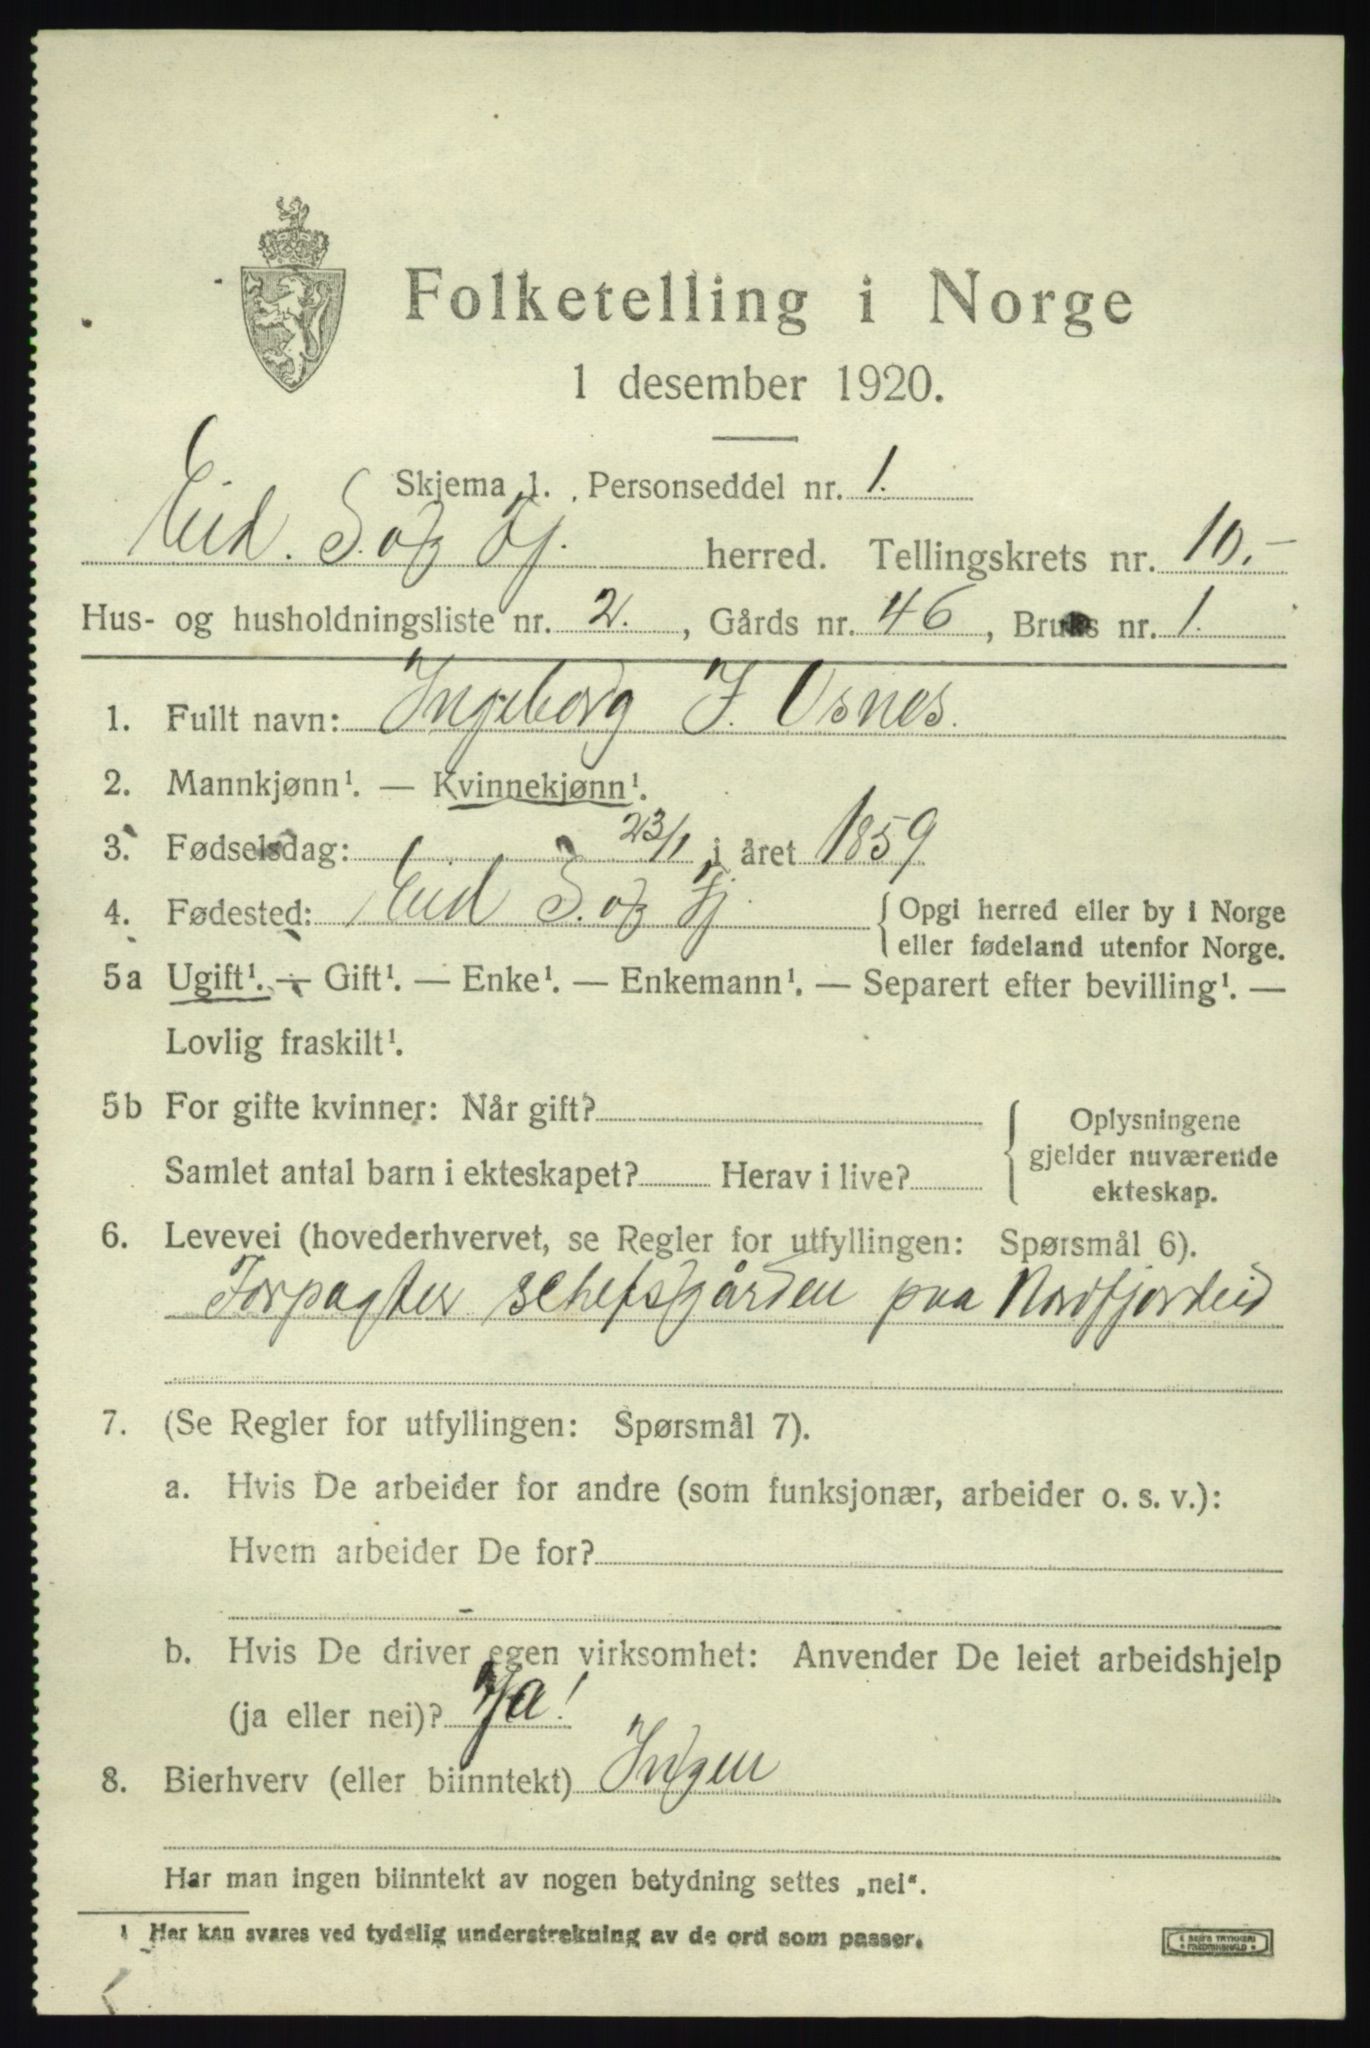 Folketelling i Norge
1 desember 1920.
Skjema 1. Personseddel nr. 1.
Eid. S. og Fj. herred. Tellingskrets nr. 10.-
Hus- og husholdningsliste nr. 2. , Gårds nr. 46 , Bruks nr. 1.
1. Fullt navn: Ingeborg J. Osnes.
2. Mannkjønn¹. — Kvinnekjønn¹.
3. Fødselsdag: 23/1 i året 1859
4. Fødested: Eid S. og Fj. { Opgi herred eller by i Norge
eller fødeland utenfor Norge.
5a Ugift¹. — Gift¹. — Enke¹. — Enkemann¹. — Separert efter bevilling¹. —
Lovlig fraskilt¹.
5b For gifte kvinner: Når gift? { Oplysningene
gjelder nuværende
Samlet antal barn i ekteskapet? Herav i live? ekteskap.
6. Levevei (hovederhvervet, se Regler for utfyllingen: Spørsmål 6).
Forpagter schefsgården paa Nordfjordeid
7. (Se Regler for utfyllingen: Spørsmål 7).
a. Hvis De arbeider for andre (som funksjonær, arbeider o. s. v.):
Hvem arbeider De for?
b. Hvis De driver egen virksomhet: Anvender De leiet arbeidshjelp
(ja eller nei)? Ja!
8. Bierhverv (eller biinntekt) Ingen
Har man ingen biinntekt av nogen betydning settes „nei".
¹ Her kan svares ved tydelig understrekning av de ord som passer.